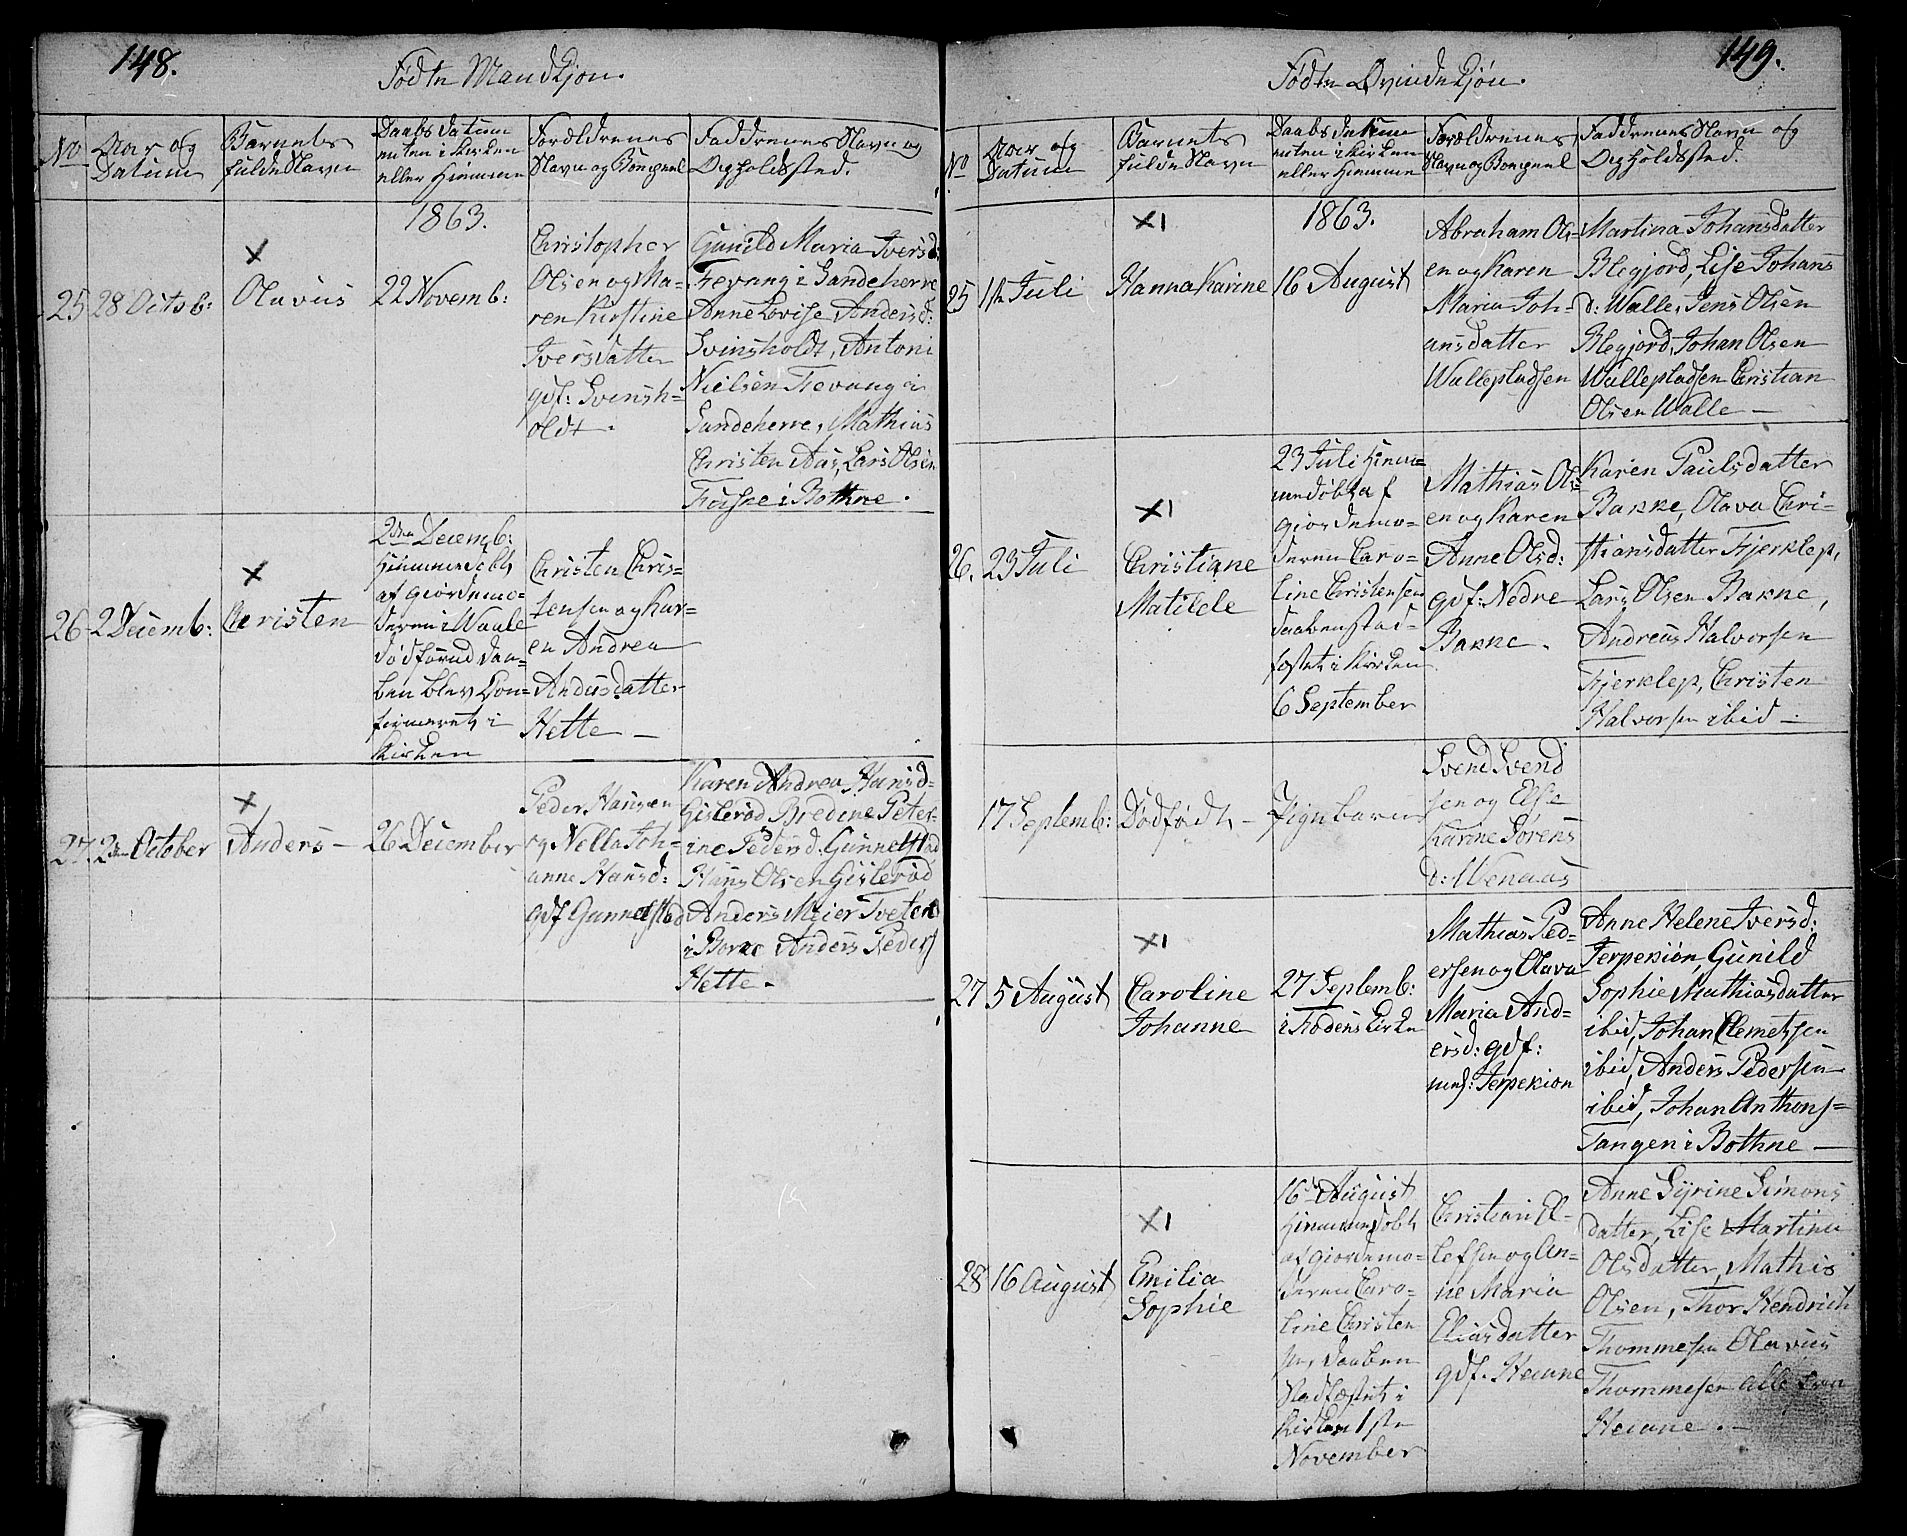 148.
Fødte Mandkjøn.
No
Aar og
Datum
Barnets
fulde Navn
Daabs Datum
enten i Kirken
eller Hiemme
Forældrenes
Navn og Bongpæl
Faddrenes Navn og
Opholdssted.
1863.
25
28 Octob:
×
Olavus
22 Novemb:
Christopher
Olsen og Ma-
ren Kirstine
Iversdatter
gdf: Svensh-
oldt.
Gunild Maria Iversd:
Fevang i Sandeherre
Anne Lovise Andersd:
Svinsholdt, Antoni
Nielsen Fevang i
Sandeherre, Mathias
Christen Aas, Lars Olsen
Fuske i Bothne.
26
2 Decemb:
×
Christen
2den Decemb:
hiemmedøbt
af giordemo-
deren i Waale
død førend daa-
ben blev Con-
firmeret i
Kirken
Christen Chris-
tensen og Kar-
en Andrea
Andersdatter
Hette —
27
2den October
×
Anders —
26 December
Peder Hansen
og Nella Joh-
anne Hansd:
gdf Gunnestad
Karen Andrea Hansd-
Gislerød Bredine Peter-
ine Pedersd: Gunnestad
Hans Olsen Gislerød
Anders Meier Tveten
i Borre Anders Peders
Hette —
149.
Fødte Qvindekjøn.
No
Aar og
Datum
Barnets
fulde Navn
Daabs Datum
enten i Kirken
eller Hiemme
Forældrenes
Navn og Bongpæl
Faddrenes Navn og
Opholdssted.
1863.
25
1ste Juli
×1
Hanna Karine
16 August
Abraham Ols-
en og Karen
Maria Joh-
ansdatter
Wallepladsen
Martina Johansdatter
Blegjord, Lise Johans
d: Walle, Jens Olsen
Blegjord, Johan Olsen
Wallepladsen Christian
Olsen Walle —
26.
23 Juli
×1
Christiane
Matilde
23 Juli hiem-
medøbt af
giordemo-
deren Caro-
line Christensen
daaben stad-
fæstet i Kirken
6 September
Mathias Ols-
en og Karen
Anne Olsd:
gdf: Nedre
Bakke.
Karen Paulsdatter
Bakke, Olava Chri-
stiansdatter Fjerklep,
Lars Olsen Bakke,
Andreas Halvorsen
Fjerklep, Christen
Halvorsen ibid —
17 Septemb:
Dødfødt —
Pigebarn
Svend Svend
sen og Else
Karine Sørens
d: Wenaas
27
5 August
×1
Caroline
Johanne
27 Septemb:
i Kirke
Mathias Ped-
ersen og Olava
Maria And-
ersd: gdf:
Jerpekiøn
Anne Helene Iversd:
Jerpekiøn, Gunild
Sophie Mathiasdatter
ibid, Johan Clemetsen
ibid, Anders Pedersen
ibid, Johan Anthons-
Tangen i Bothne —
28
16 August
×1
Emilia
Sophie
16 August
hiemmedøbt
af giordemo-
deren Caro-
line Christen
sen daaben
stadfæstet i
Kirken 1ste
November
Christian El-
lefsen og An-
ne Maria
Eliasdatter
gdf. Heiane
Anne Syrine Simons
datter, Lise Martina
Olsdatter, Mathis
Olsen, Thor Hendrich
Thommesen Olavus
Thommesen alle fra
Heiane. —